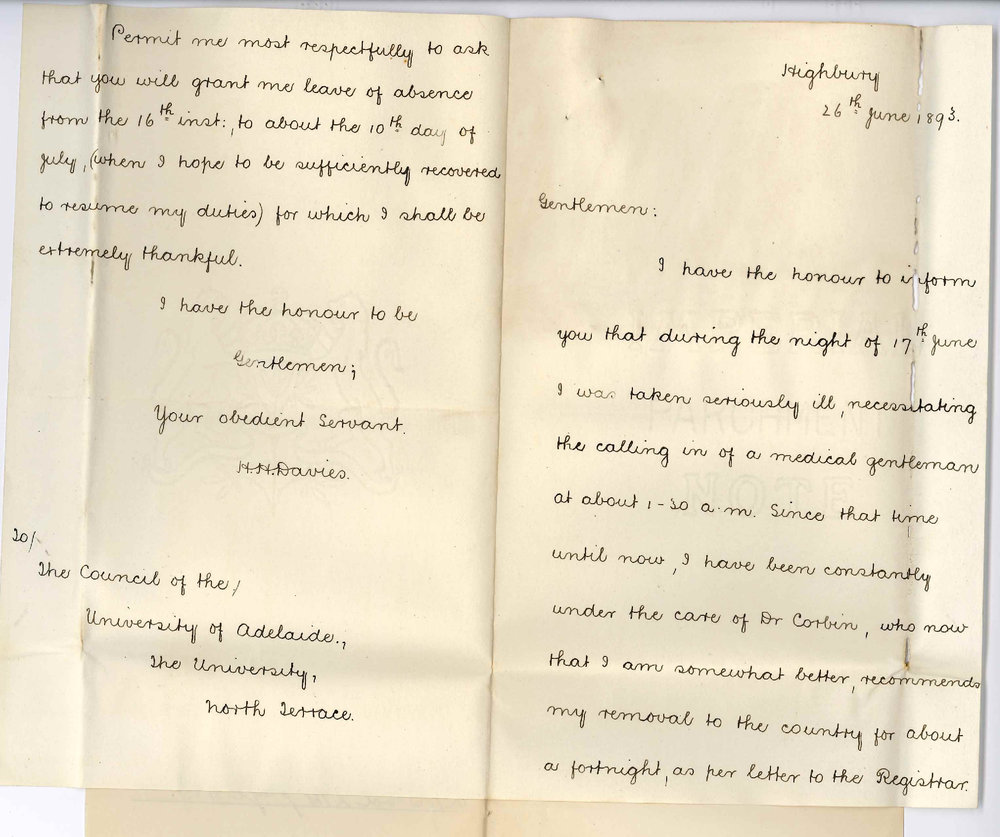 Highbury
26th June 1893.
Gentlemen:
I have the honour to inform
you that during the night of 17th June
I was taken seriously ill, necessitating
the calling in of a medical gentleman
at about 1-30 a.m. Since that time
until now, I have been constantly
under the care of Dr Corbin, who now
that I am somewhat better, recommends
my removal to the country for about
a fortnight, as per letter to the Registrar.
Permit me most respectfully to ask
that you will grant me leave of absence
from the 16th inst:, to about the 10th day of
July, (when I hope to be sufficiently recovered
to resume my duties) for which I shall be
extremely thankful.
I have the honour to be
Gentlemen;
Your obedient Servant.
H.H.Davies.
To/
The Council of the/
University of Adelaide.,
The University,
North Terrace.